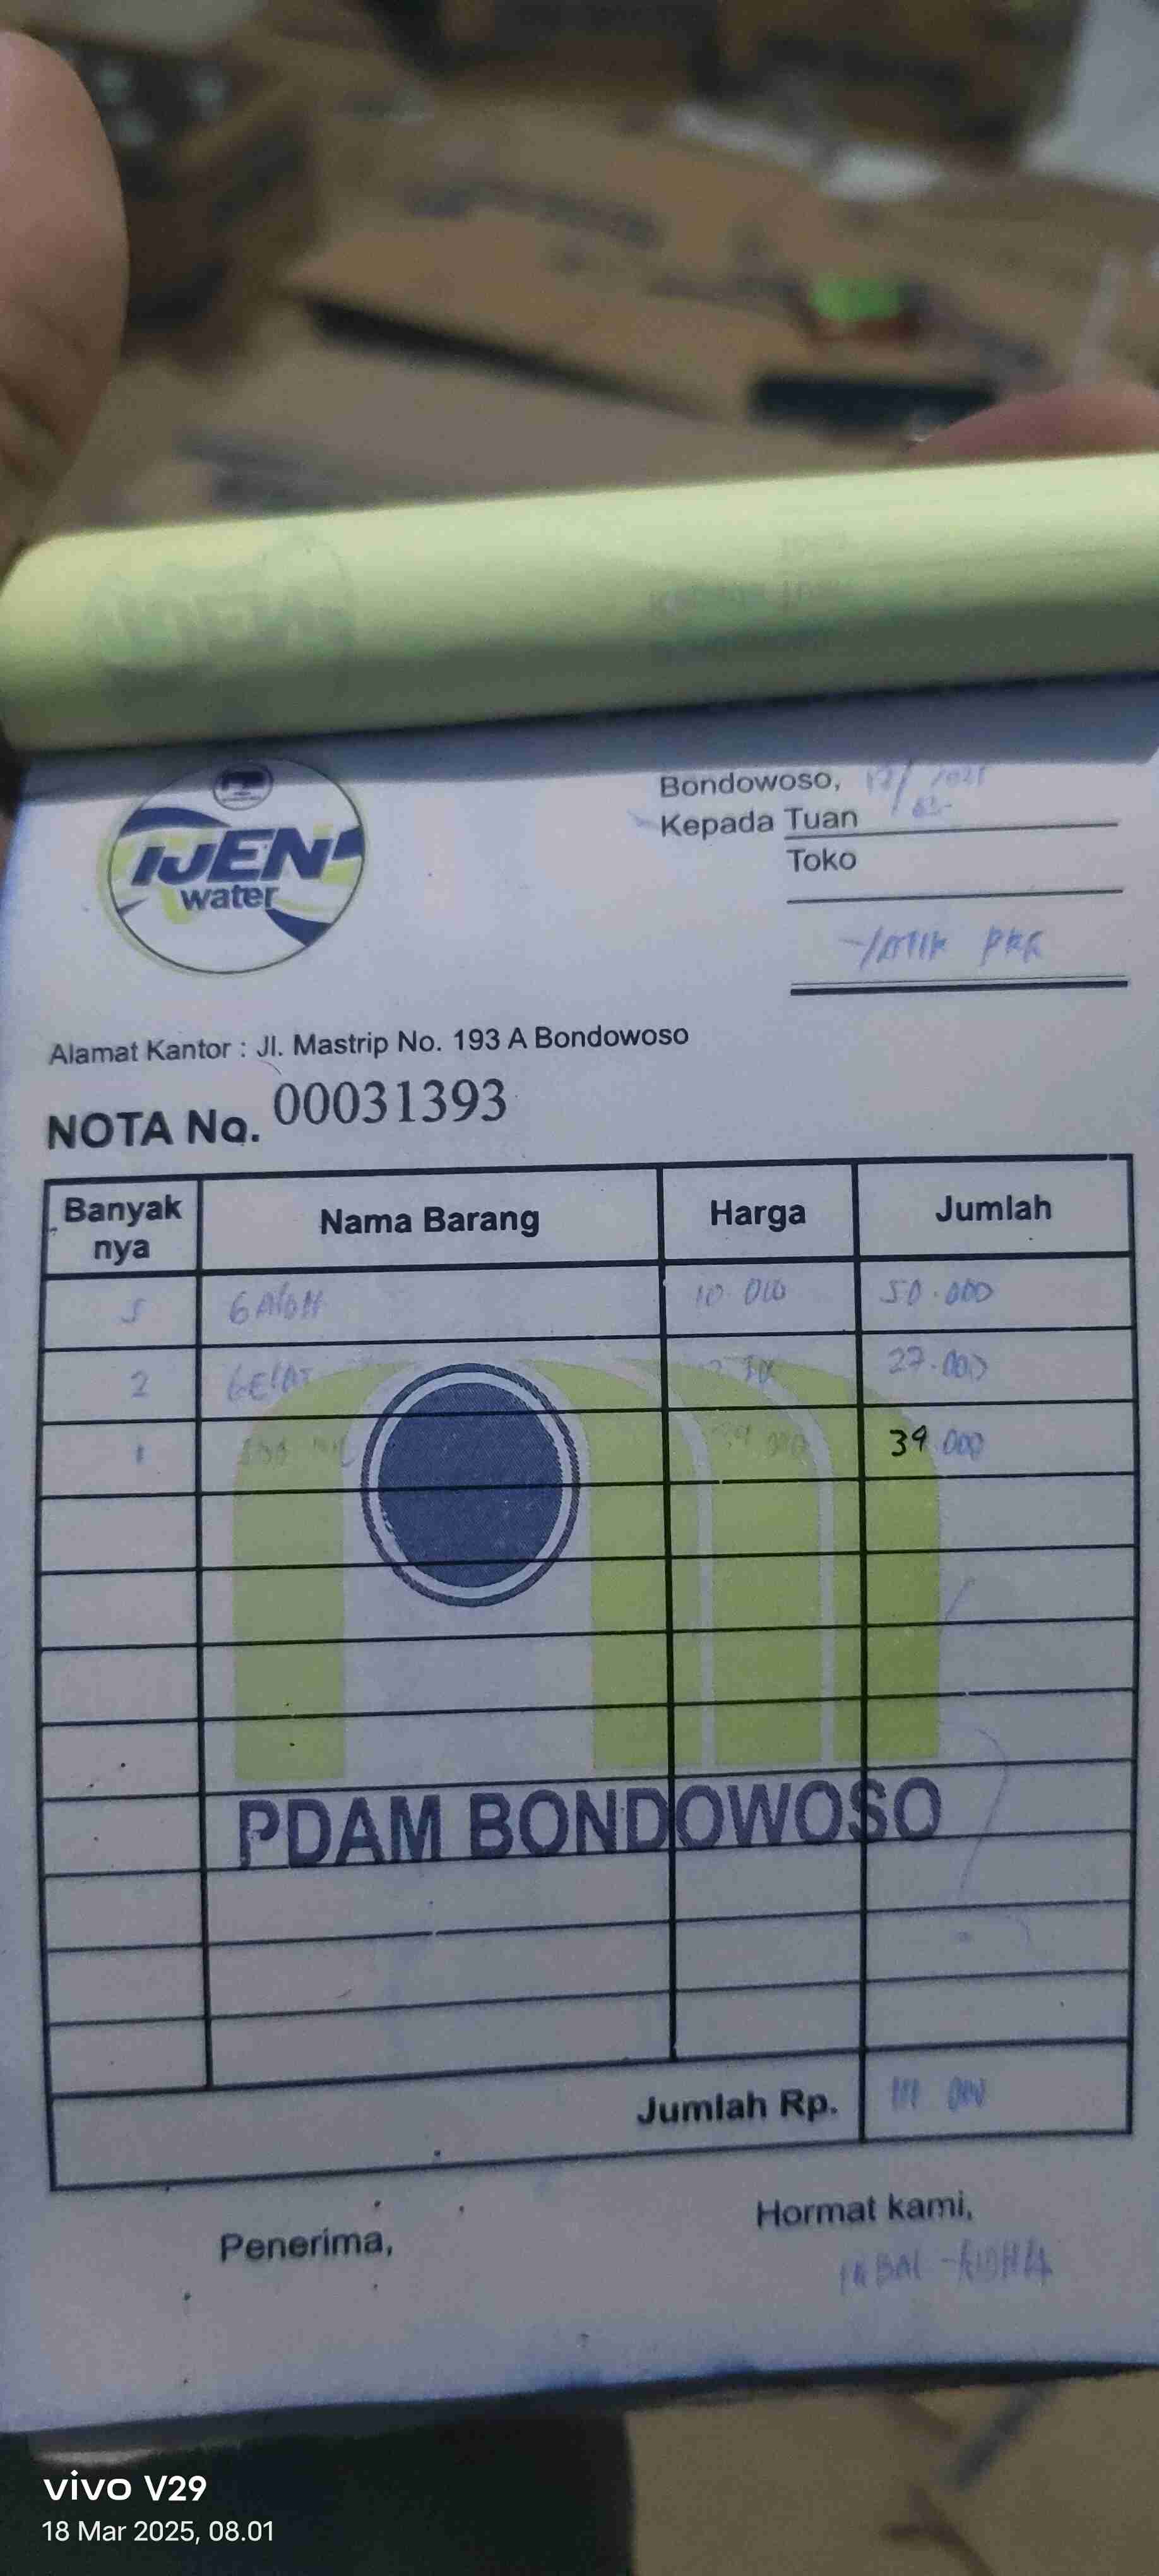 IJEN
water
Bondowoso, 17/03-2025
Kepada Tuan
Toko
PKK
Alamat Kantor : Jl. Mastrip No. 193 A Bondowoso
NOTA No. 00031393
Banyak nya Nama Barang Harga Jumlah
5 GALON 10.000 50.000
2 GELAS 27.000
1 39.000
PDAM BONDOWOSO
Jumlah Rp. 111.000
Penerima, Hormat kami,
IQBAL
vivo V29
18 Mar 2025, 08.01